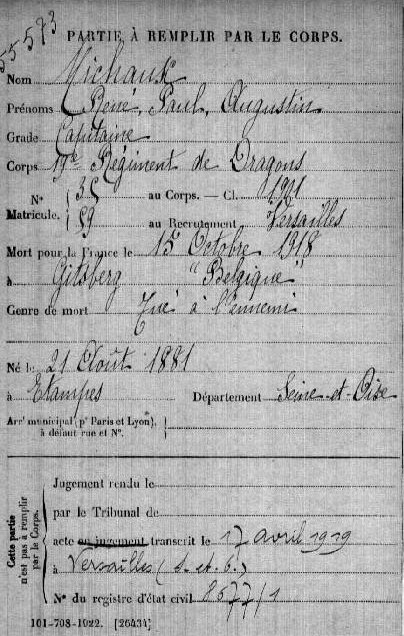 55573
PARTIE À REMPLIR PAR LE CORPS.
Nom Michaux
Prénoms René, Paul, Augustin
Grade Capitaine
Corps 19e Régiment de Dragons
N° Matricule. { 35 au Corps. — Cl. 1901
59 au Recrutement Versailles
Mort pour la France le 15 Octobre 1918
à Gitsberg "Belgique"
Genre de mort Tué à l'ennemi
Né le 21 Août 1881
à Etampes Département Seine-et-Oise
Arrt municipal (pr Paris et Lyon),
à défaut rue et N°.
Cette partie n'est pas à remplir par le Corps.
Jugement rendu le
par le Tribunal de
acte ou jugement transcrit le 17 avril 1919
à Versailles (S. et O.)
N° du registre d'état civil 8677/1
101-708-1922. [26434]